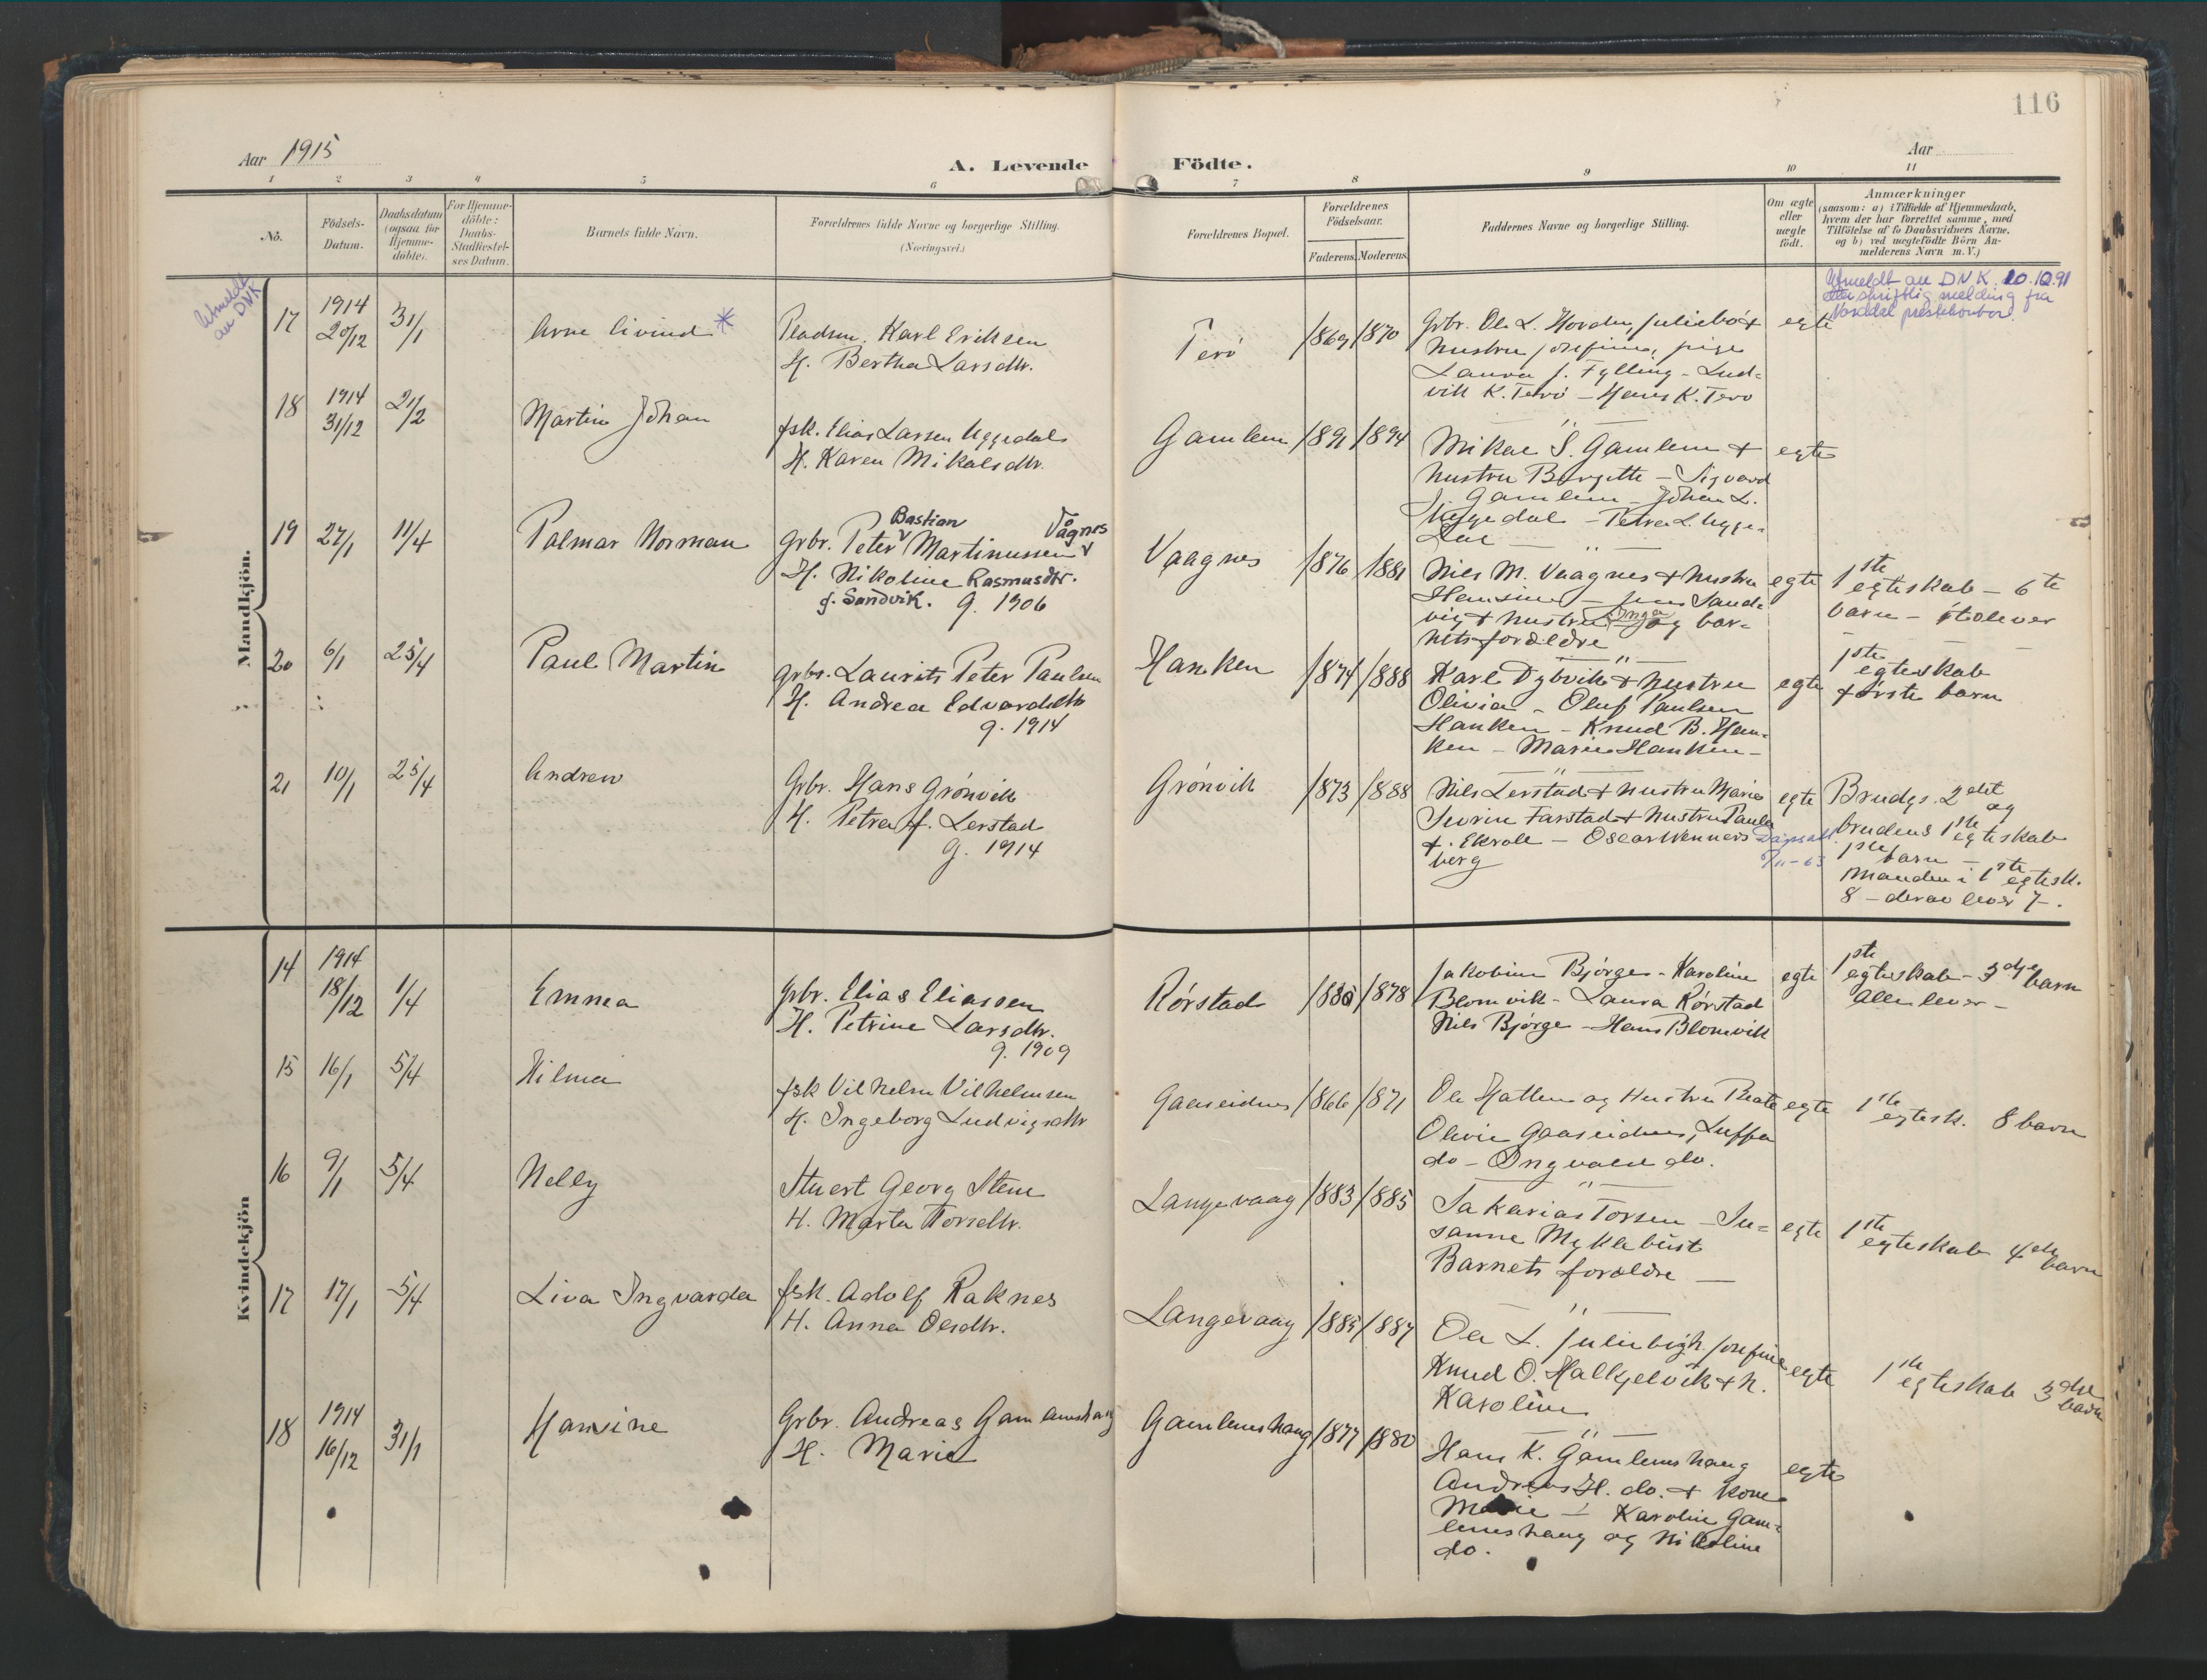 116
Aar 1915
A. Levende Födte.
Aar
1 2 3 4 5 6 7 8 9 10 11
No.
Födsels-
Datum.
Daabsdatum
(ogsaa for
Hjemme-
döbte).
For Hjemme-
döbte:
Daabs-
Stadfæstel-
ses Datum.
Barnets fulde Navn.
Forældrenes fulde Navne og borgerlige Stilling.
(Næringsvei.)
Forældrenes Bopæl.
Forældrenes
Födselsaar.
Faderens. Moderens.
Faddernes Navne og borgerlige Stilling.
Om ægte
eller
uægte
födt.
Anmærkninger
(saasom: a) i Tilfælde af Hjemmedaab,
hvem der har forrettet samme, med
Tilföielse af to Daabsvidners Navne,
og b) ved uægtefödte Börn An-
melderens Navn m. V.)
Mandkjön.
Utmeldt
av DNK
17
1914
20/12
31/1
Arne Eivind *
Pladsm. Karl Eriksen
H. Bertha Larsdtr.
Terö
1869 1870
Grbr. Ole L. Hovden, Juliebö +
hustru Josefine, pige
Laura J. Fylling - Lud-
vik K. Terö - Hans K. Terö
egte
Utmeldt av DNK 10.10.91
etter skriftlig melding fra
Norddal prestekontor.
18
1914
31/12
21/2
Martin Johan
fsk. Elias Larsen Uggedal
H. Karen Mikalsdtr.
Gamlem
1891 1894
Mikal S. Gamlem +
hustru Bergitte - Sigvard
J. Gamlem - Johan L.
Uggedal - Petra L. Ugge-
dal
egte
19
27/1
11/4
Palmar Norman
Bastian Vågnes
Grbr. Peter Martinussen
H. Nikoline Rasmusdtr.
f. Sandvik. g. 1906
Vaagnes
1876 1881
Nils M. Vaagnes + hustru
Hansine - Jens Sand-
vig + hustru Inga og bar-
nets forældre
egte
1ste egteskab - 6te
barn - lever
20
6/1
25/4
Paul Martin
Grbr. Laurits Peter Paulsen
H. Andrea Edvardsdtr
g. 1914
Hanken
1874 1888
Karl Dybvik + hustru
Olivia - Oluf Paulsen
Hanken - Knud B. Han-
ken - Marie Hanken -
egte
1ste egteskab
første barn
21
10/1
25/4
Andrew
Grbr. Hans Grönvik
H. Petra f. Lerstad
g. 1914
Grönvik
1873 1888
Nils Lerstad + hustru Marie
Severin Farstad + hustru Paula
Ekroll - Oscar Wenners
berg
egte
Dåpsatt.
/11-63
Brudgs. 2det og
brudens 1ste egteskab
1ste barn -
Manden i 1ste egtesk.
8 - derav lever 7.
Kvindekjön
14
1914
18/12
1/4
Emma
Grbr. Elias Eliassen
H. Petrine Larsdtr.
g. 1909
Rörstad
1880 1878
Jakobine Bjørge - Karoline
Blomvik - Laura Rørstad
Nils Bjørge - Hans Blomvik
egte
1ste egteskab - 3dje barn
alle lever -
15
16/1
5/4
Hilma
fsk Vilhelm Vilhelmsen
H. Ingeborg Ludvigsdtr
Gaaseidnes
1866 1871
Ole Hatlem og Hustru Beate
Olivie Gaaseidnes, Luffa
do - Ingvald do.
egte
1ste egtesk. 8 barn
16
9/1
5/4
Nelly
Stuert Georg Stene
H. Marta Torsdtr.
Langevaag
1883 1885
Sakarias Torsen - Su-
sanne Myklebust
Barnets forældre
egte
1ste egteskab 4de barn
17
17/1
5/4
Liva Ingvarda
fsk. Adolf Raknes
H. Anna Olesdtr.
Langevaag
1885 1887
Ole L. Juliebö + h. Josefine
Knud O. Halkjelsvik + h.
Karoline
egte
1ste egteskab 3dje barn
18
1914
16/12
31/1
Hansine
Grbr. Andreas Gamlemshaug
H. Marie
Gamlemshaug
1877 1880
Hans K. Gamlemshaug
Andreas H. do. + kone
Marie - Karoline Gam-
lemshaug og Nikoline
do.
egte